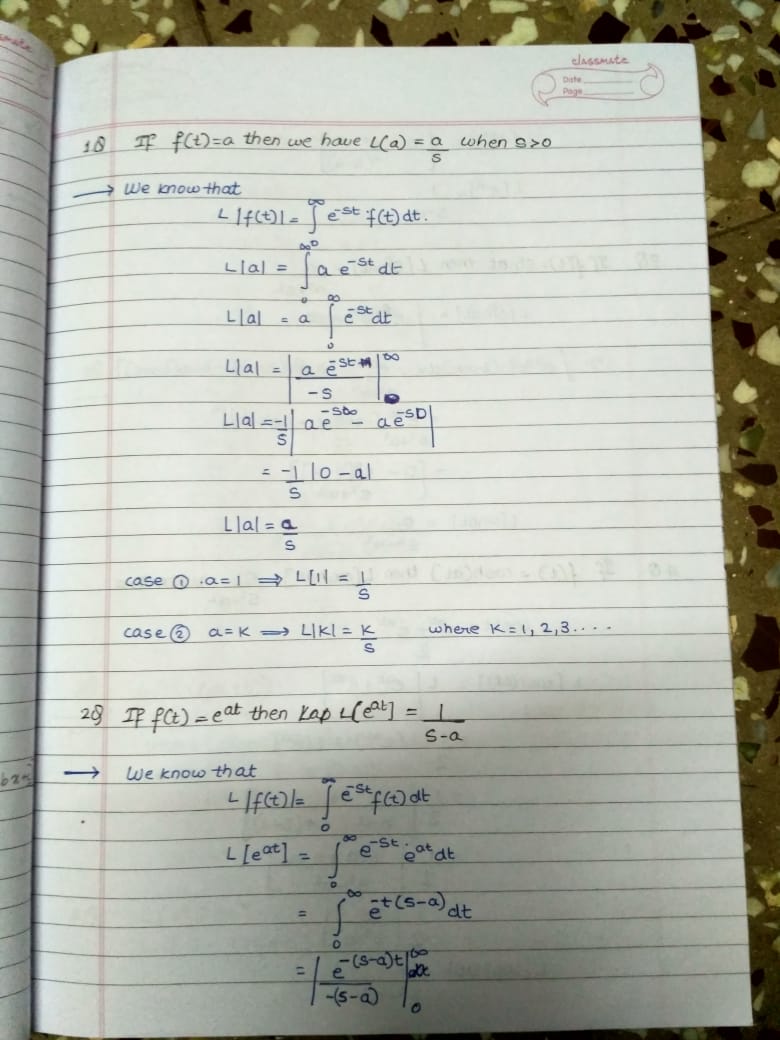 classmate
Date
Page
1Q If f(t)=a then we have L(a) = a/s when s>0
→ We know that
L|f(t)| = ∫₀^∞ e^-st f(t) dt.
L|a| = ∫₀^∞ a e^-st dt
L|a| = a ∫₀^∞ e^-st dt
L|a| = | a e^-st / -s |₀^∞
L|a| = -1/s | a e^-s∞ - a e^-s0 |
= -1/s |0 - a|
L|a| = a/s
case ① . a=1 ⟹ L[1] = 1/s
case ② a=K ⟹ L|K| = K/s where K=1, 2, 3....
2Q If f(t) = e^at then L[e^at] = 1/(s-a)
→ We know that
L|f(t)| = ∫₀^∞ e^-st f(t) dt
L[e^at] = ∫₀^∞ e^-st . e^at dt
= ∫₀^∞ e^-t(s-a) dt
= | e^-(s-a)t / -(s-a) |₀^∞